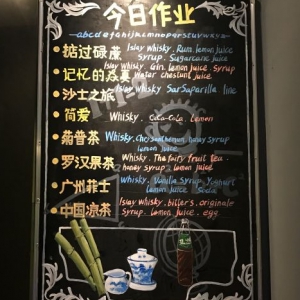 今日作业
abcdefghijkmnopqrstuvwxyz
掂过碌蔗 Islay whisky. Rum. lemon juice
Syrup. Sugarcane juice
Islay whisky. Gin. lemon juice. Syrup
记忆的 Water chestnut juice
沙士之旅 Islay whisky Sarsaparilla
简爱 Whisky. Coca-Cola. Lemon
菊普茶 Whisky. honey syrup
lemon juice
罗汉果茶 Whisky. The fruit tea
honey syrup. lemon juice
广州菲士 Islay whisky. Vanilla Syrup. Yoghurt
lemon juice Soda
中国凉茶 Islay whisky. bitters.
Syrup. lemon juice. egg